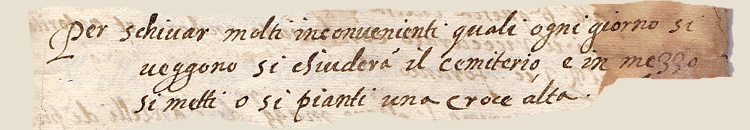 Per schivar molti inconvenienti quali ogni giorno si
veggono si chiuderà il cemiterio, e in mezzo
si metti o si pianti una croce alta.